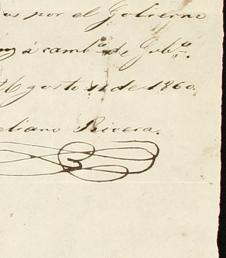 por el Gobierno
á camb.º de Gob.º
Agosto 11 de 1860.
eliano Rivera.